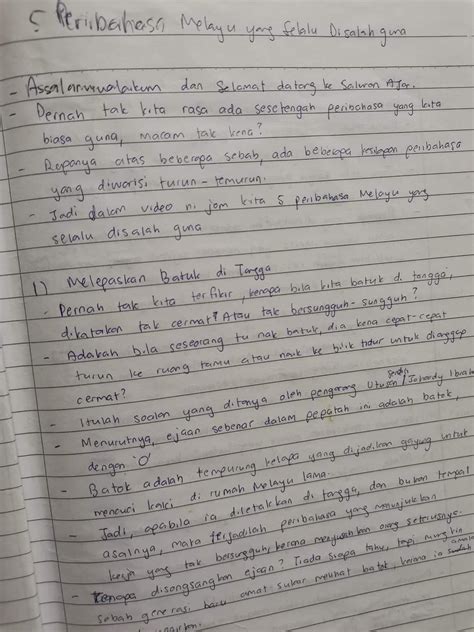 5 Peribahasa Melayu yang Selalu Disalah guna
- Assalammualaikum dan Selamat datang ke Saluran Ajar.
- Pernah tak kita rasa ada sesetengah peribahasa yang kita
biasa guna, macam tak kena?
- Rupanya atas beberapa sebab, ada beberapa peribahasa
yang diwarisi turun-temurun.
- Jadi dalam video ni jom kita 5 peribahasa Melayu yang
selalu disalah guna
1) Melepaskan Batuk di Tangga
- Pernah tak kita terfikir, kenapa bila kita batuk di tangga,
dikatakan tak cermat? Atau tak bersungguh-sungguh?
- Adakah bila seseorang tu nak batuk, dia kena cepat-cepat
turun ke ruang tamu atau naik ke bilik tidur untuk dianggap
cermat?
- Itulah soalan yang ditanya oleh pengarang Utusan
- Menurutnya, ejaan sebenar dalam pepatah ini adalah batok,
dengan 'O'
- Batok adalah tempurung kelapa yang dijadikan gayung untuk
mencuci kaki di rumah Melayu lama.
- Jadi, apabila ia diletakkan di tangga, dan bukan tempat
asalnya, maka terjadilah peribahasa yang menunjukkan
kerja yang tak bersungguh, kerana menyusahkan orang seterusnya.
- Kenapa disongsangkan ejaan? Tiada siapa tahu, tapi mungkin
sebab generasi baru amat sukar melihat batok, kerana ia